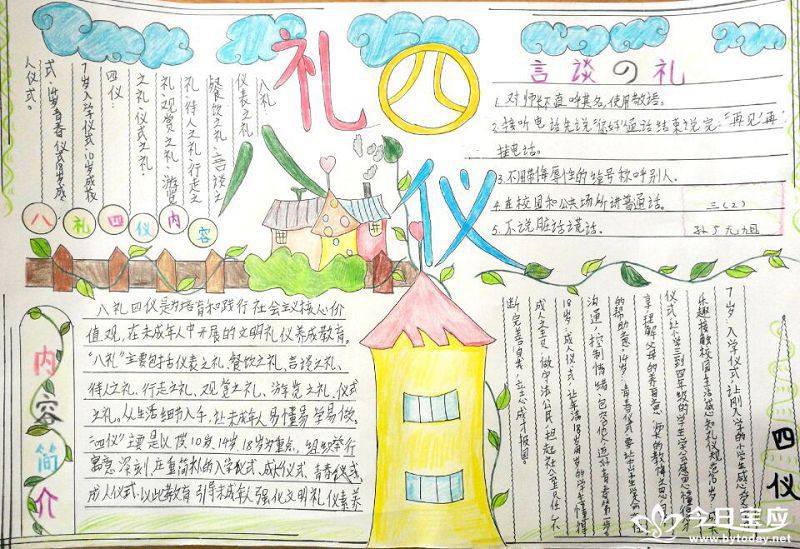 八礼四仪
八礼:
仪表之礼
餐饮之礼、言谈之
礼、待人之礼、行走之
礼、观赏之礼、游览
之礼、仪式之礼
四仪:
7岁入学仪式、10岁成长
仪式、14岁青春仪式、18岁成
人仪式。
八礼四仪内容
言谈の礼
1.对师长不直呼其名,使用敬语。
2.接听电话先说"你好"通话结束,说完"再见"再
挂电话。
3.不用带侮辱性的绰号称呼别人。
4.在校园和公共场所讲普通话。
5.不说脏话谎话。
三(2)
内容简介
八礼四仪是为培育和践行社会主义核心价
值观,在未成年人中开展的文明礼仪养成教育。
"八礼"主要包括仪表之礼、餐饮之礼、言谈之礼、
待人之礼、行走之礼、观赏之礼、游览之礼、仪式
之礼。从生活细节入手,让未成年人易懂易学易做。
"四仪"主要是以7岁10岁、14岁18岁为重点,组织举行
寓意深刻、庄重简朴的入学仪式、成长仪式、青春仪式、
成人仪式,以此教育引导未成年人强化文明礼仪素养
四仪
7岁:入学仪式,让刚入学的小学生感心受
乐趣接触校园生活感知礼仪规范。10岁:
仪式,让小学三到四年级的学生学会感恩懂得
享,理解父母的养育之恩、师长的教诲之恩
的帮助之恩。14岁:青春仪式,要让中学生学会
沟通,控制情绪,包容他人,迈好青春第一步
18岁:成人仪式,让年满18岁的学生懂得
成人之责,做守法公民,担起社会责任,不
断完善自我,立志成才报国。
今日宝应
www.bytoday.net